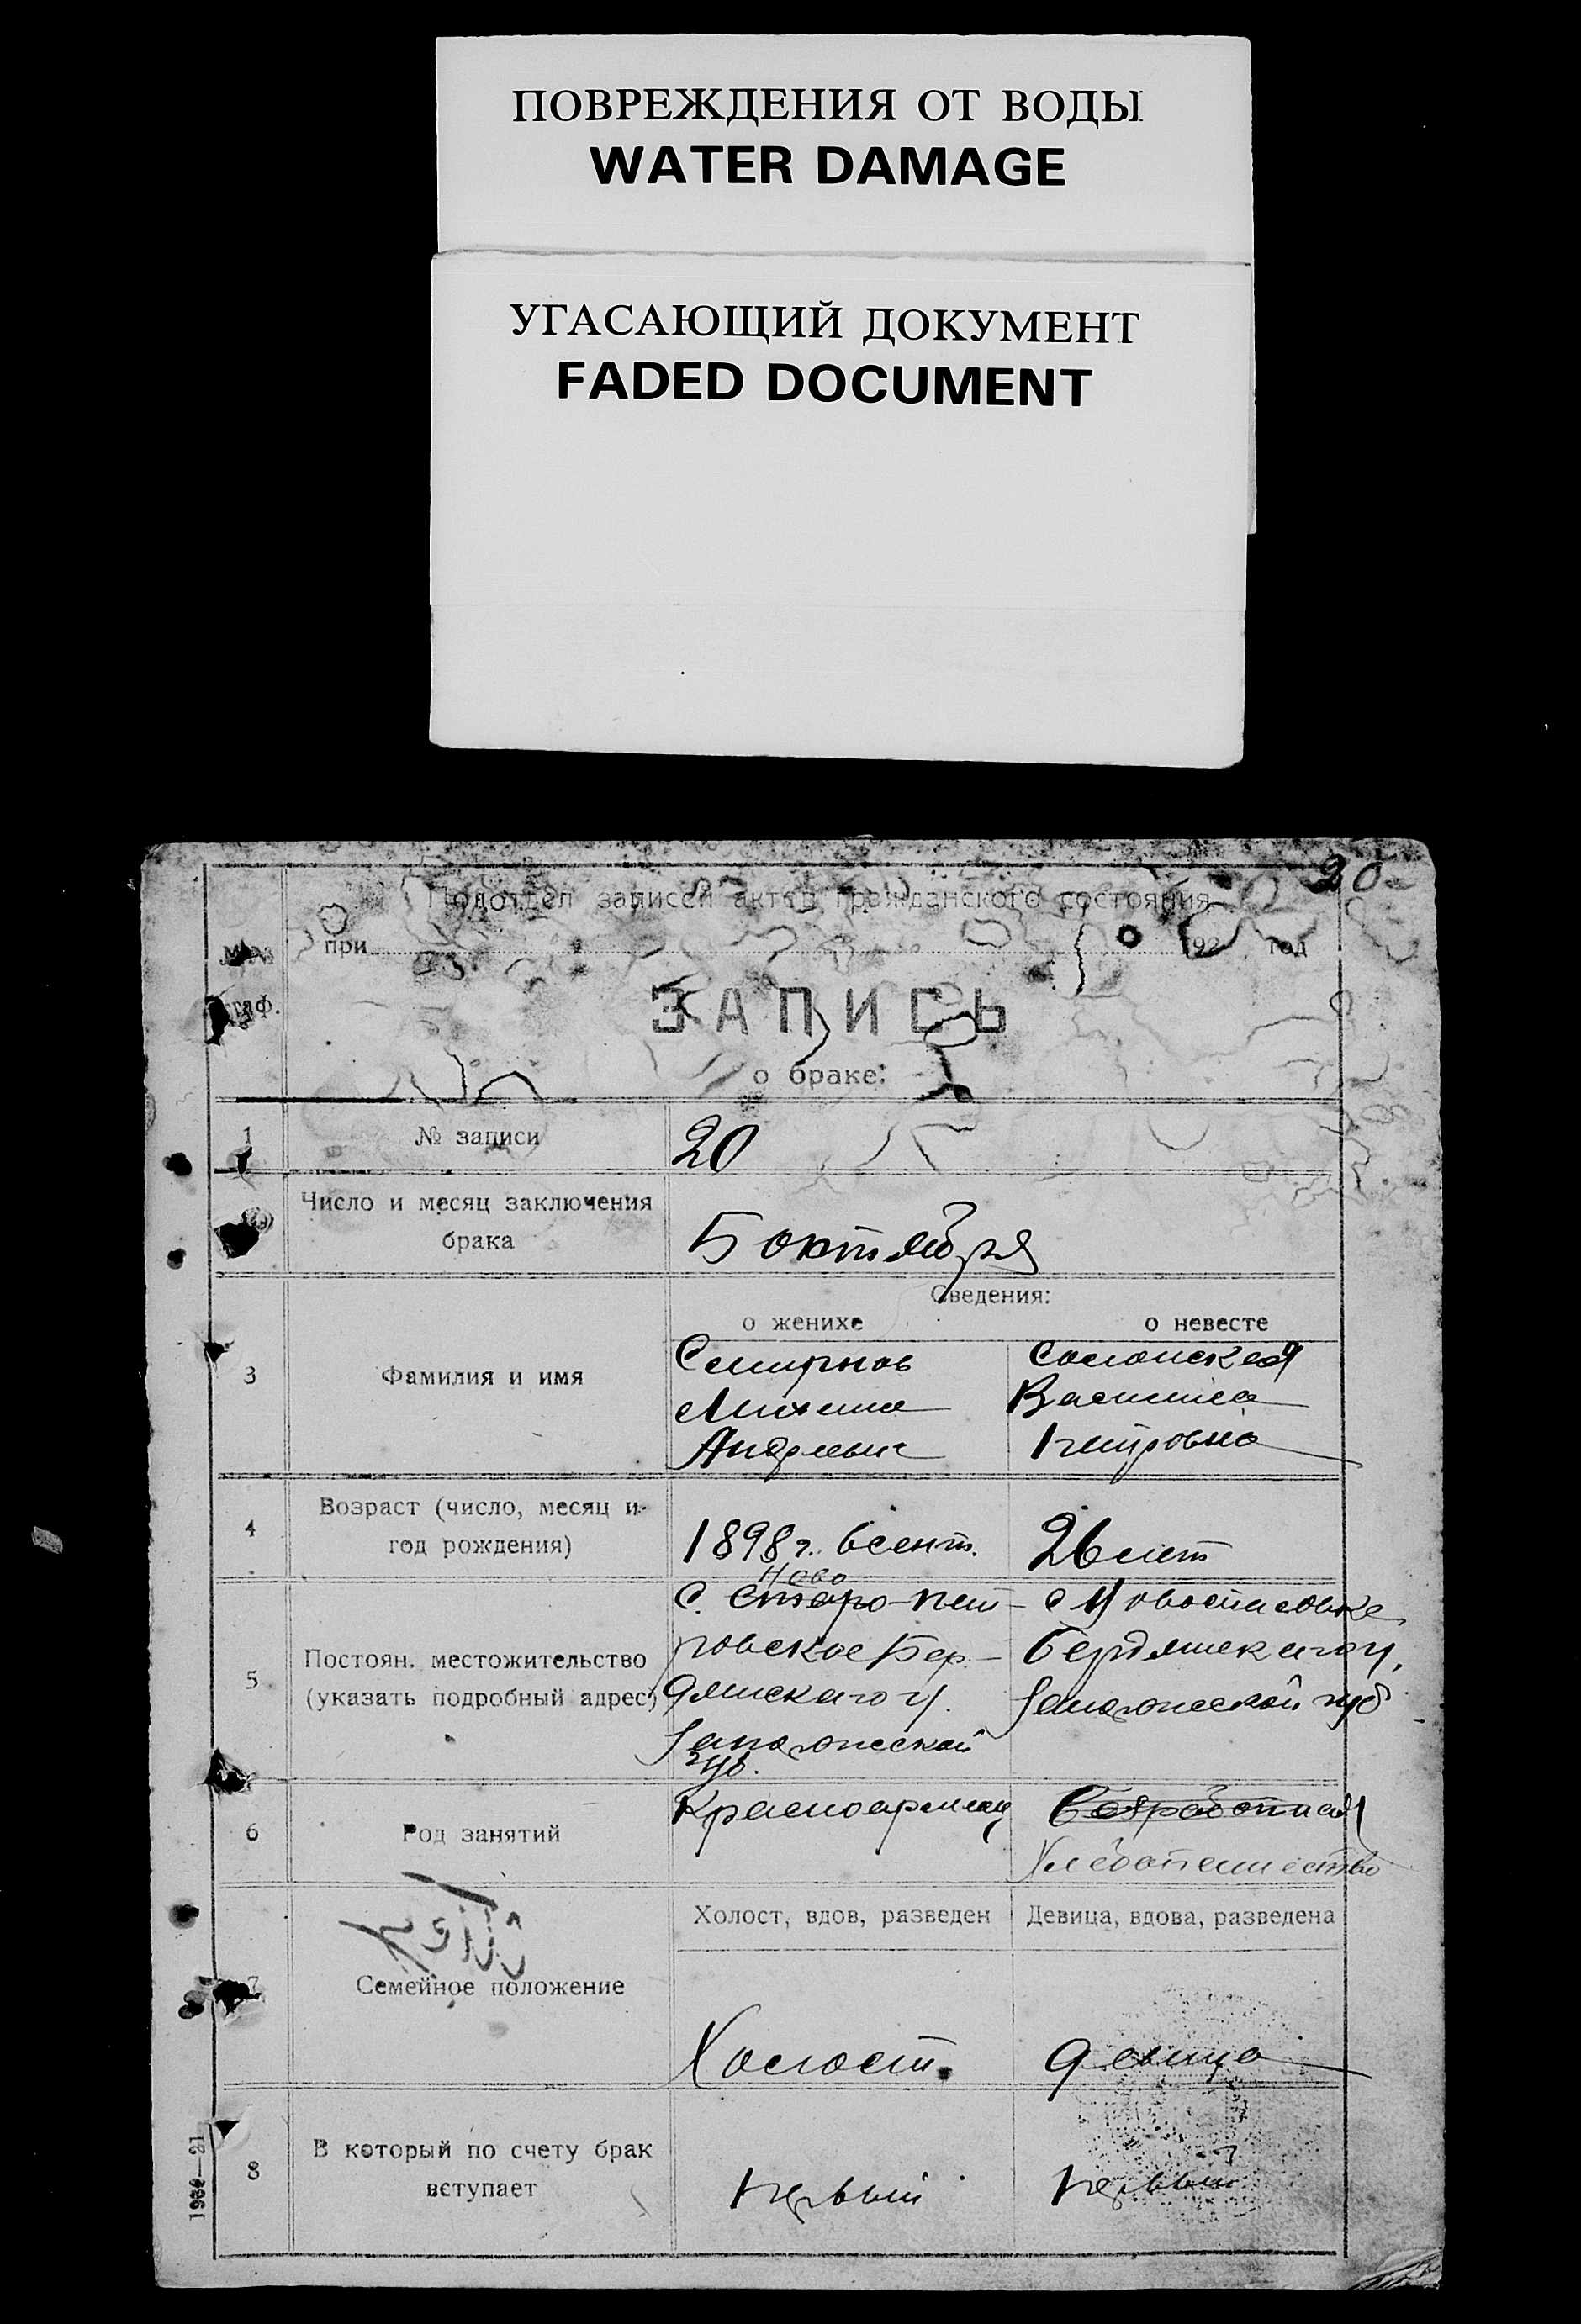 ПОВРЕЖДЕНИЯ ОТ ВОДЫ
WATER DAMAGE
УГАСАЮЩИЙ ДОКУМЕНТ
FADED DOCUMENT
20
Подотдел записей актов гражданского состояния
№№ при 192 год
граф.
ЗАПИСЬ
о браке:
1 № записи 20
Число и месяц заключения
брака
5 октября
Сведения:
о женихе о невесте
3 Фамилия и имя
Смирнов
Андреевич
Василиса
Петровна
4 Возраст (число, месяц и
год рождения)
1898 г. 6 сент. 26 лет
5 Постоян. местожительство
(указать подробный адрес)
Ново
с. Старо-Пет-
ровское Бер-
дянскаго у.
Запорожской
губ.
с Новоспасовке
Бердянскаго у.
Запорожской губ
6 Род занятий
Красноармеец
Хлебопашество
Холост, вдов, разведен Девица, вдова, разведена
7 Семейное положение
Холост. девица
8 В который по счету брак
вступает
первый первый